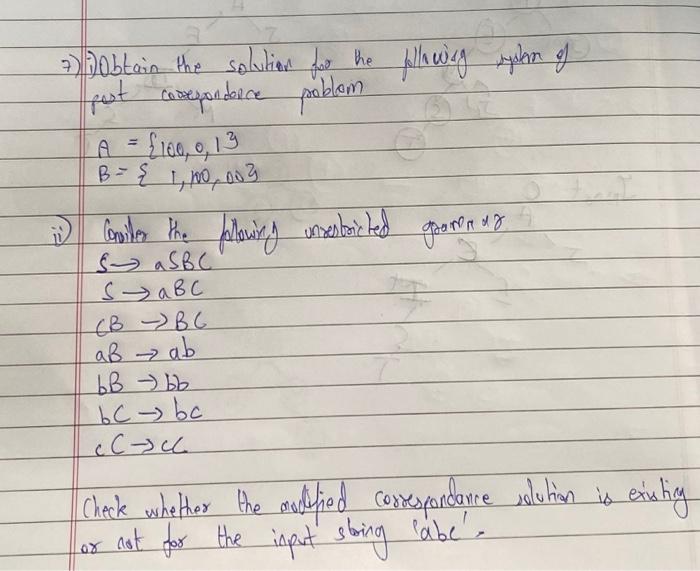 7) i) Obtain the solution for the following system of
post correspondence problem
A = {100, 0, 1}
B = { 1, 100, 00}
ii) Consider the following unrestricted grammar
S → aSBC
S → aBC
CB → BC
aB → ab
bB → bb
bC → bc
cC → cc
Check whether the modified correspondance solution is existing
or not for the input string 'abc'.